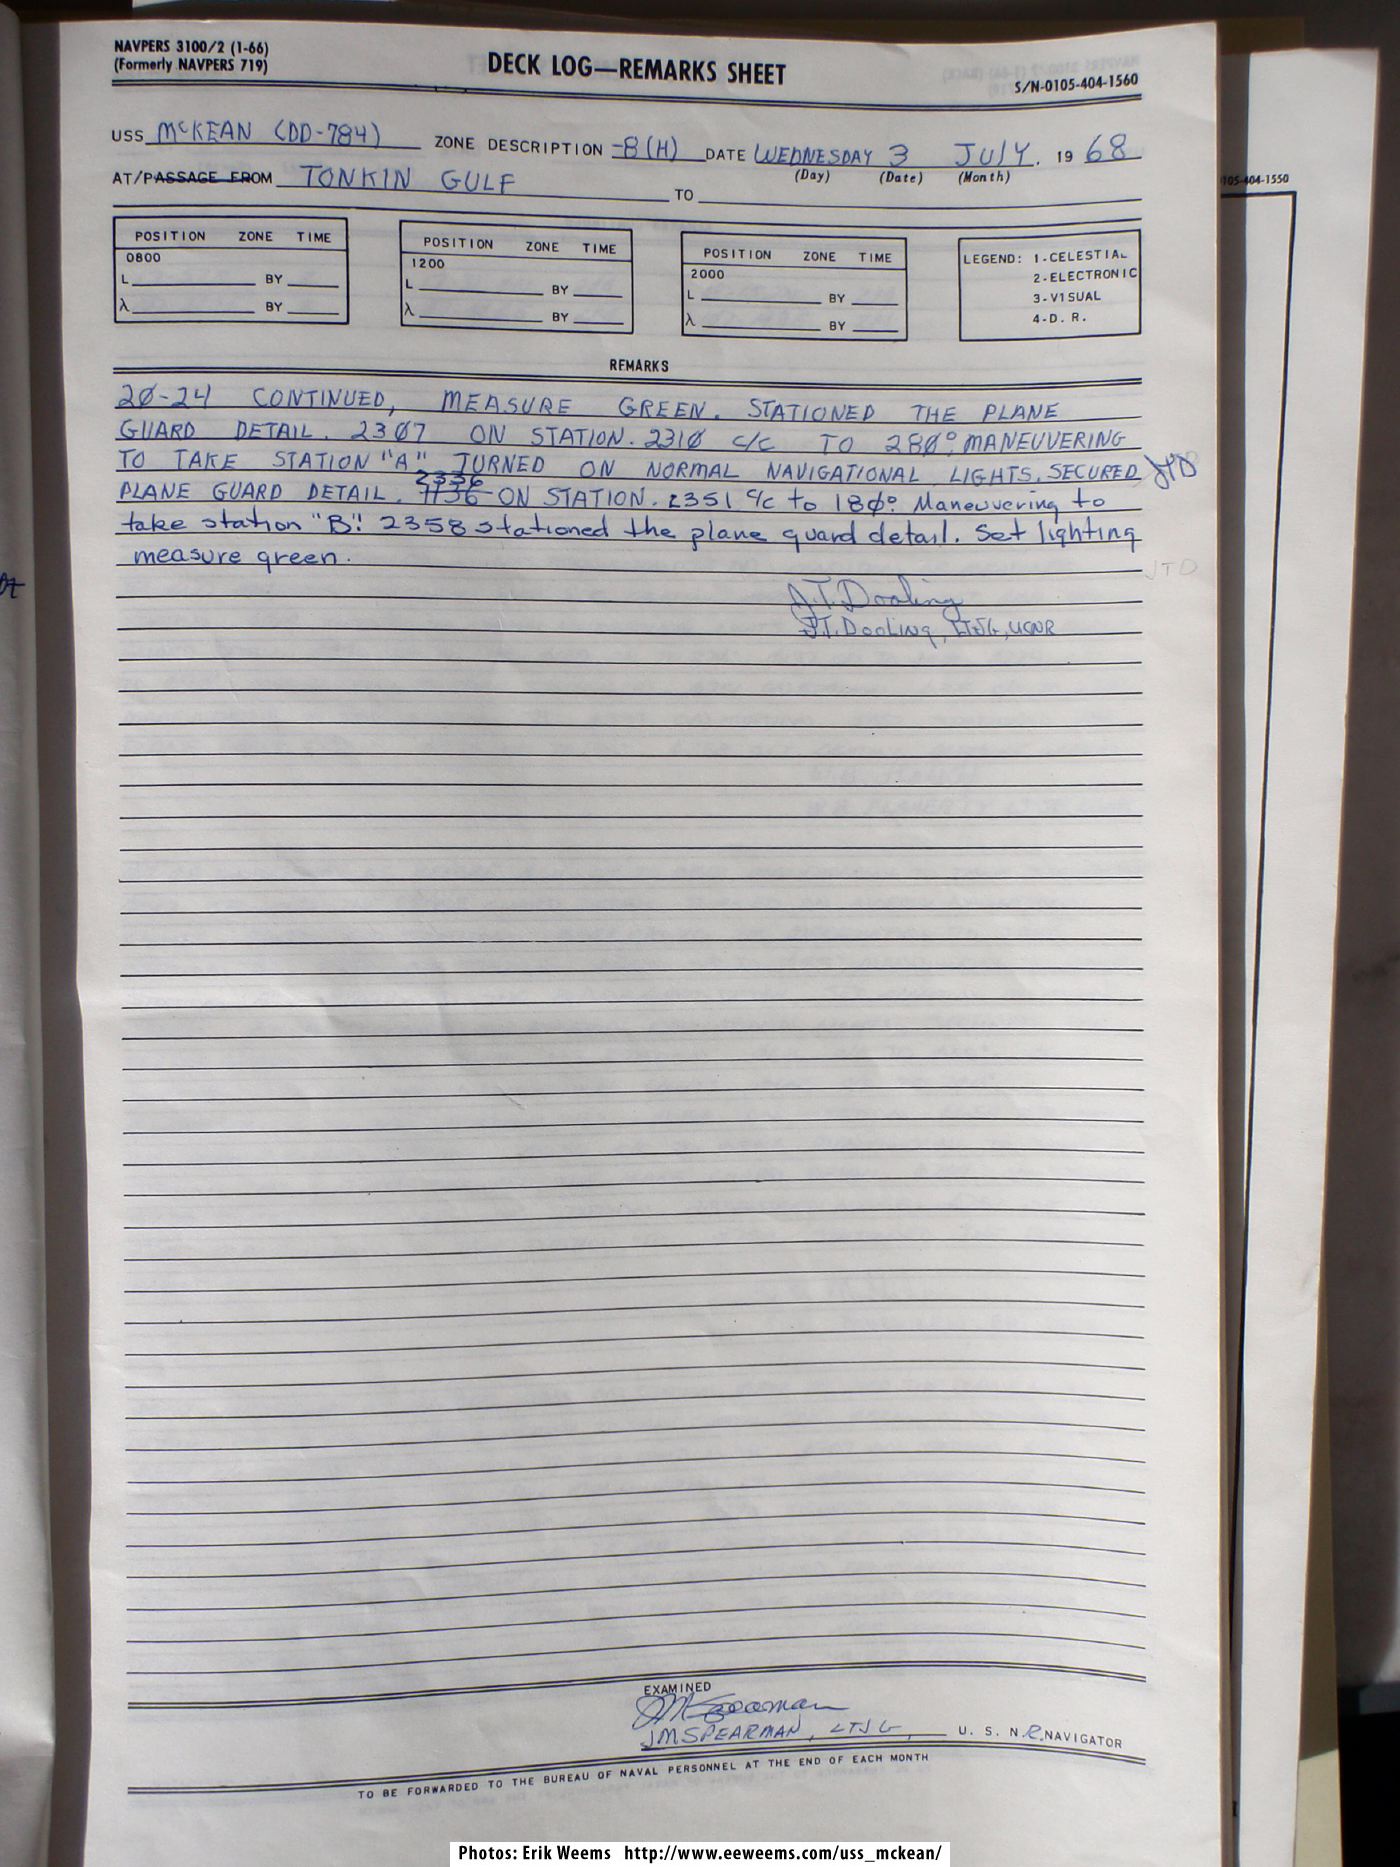 NAVPERS 3100/2 (1-66)
(Formerly NAVPERS 719)
DECK LOG—REMARKS SHEET
S/N-0105-404-1560
USS McKEAN (DD-784) ZONE DESCRIPTION -8(H) DATE WEDNESDAY 3 JULY, 19 68
(Day) (Date) (Month)
AT/PASSAGE FROM TONKIN GULF TO
105-404-1550
POSITION ZONE TIME
0800
L BY
λ BY
POSITION ZONE TIME
1200
L BY
λ BY
POSITION ZONE TIME
2000
L BY
λ BY
LEGEND: 1-CELESTIAL
2-ELECTRONIC
3-VISUAL
4-D. R.
REMARKS
20-24 CONTINUED, MEASURE GREEN. STATIONED THE PLANE
GUARD DETAIL. 2307 ON STATION. 2310 C/C TO 280° MANEUVERING
TO TAKE STATION "A" TURNED ON NORMAL NAVIGATIONAL LIGHTS. SECURED JTD
2336
PLANE GUARD DETAIL. 1136 ON STATION. 2351 C/C to 180° Maneuvering to
take station "B". 2358 stationed the plane guard detail. Set lighting
measure green.
JTD
J.T. Dooling
J.T. DOOLING, LTJG, USNR
EXAMINED
JM Spearman
JMSPEARMAN, LTJG, U. S. N.R. NAVIGATOR
TO BE FORWARDED TO THE BUREAU OF NAVAL PERSONNEL AT THE END OF EACH MONTH
Photos: Erik Weems http://www.eeweems.com/uss_mckean/